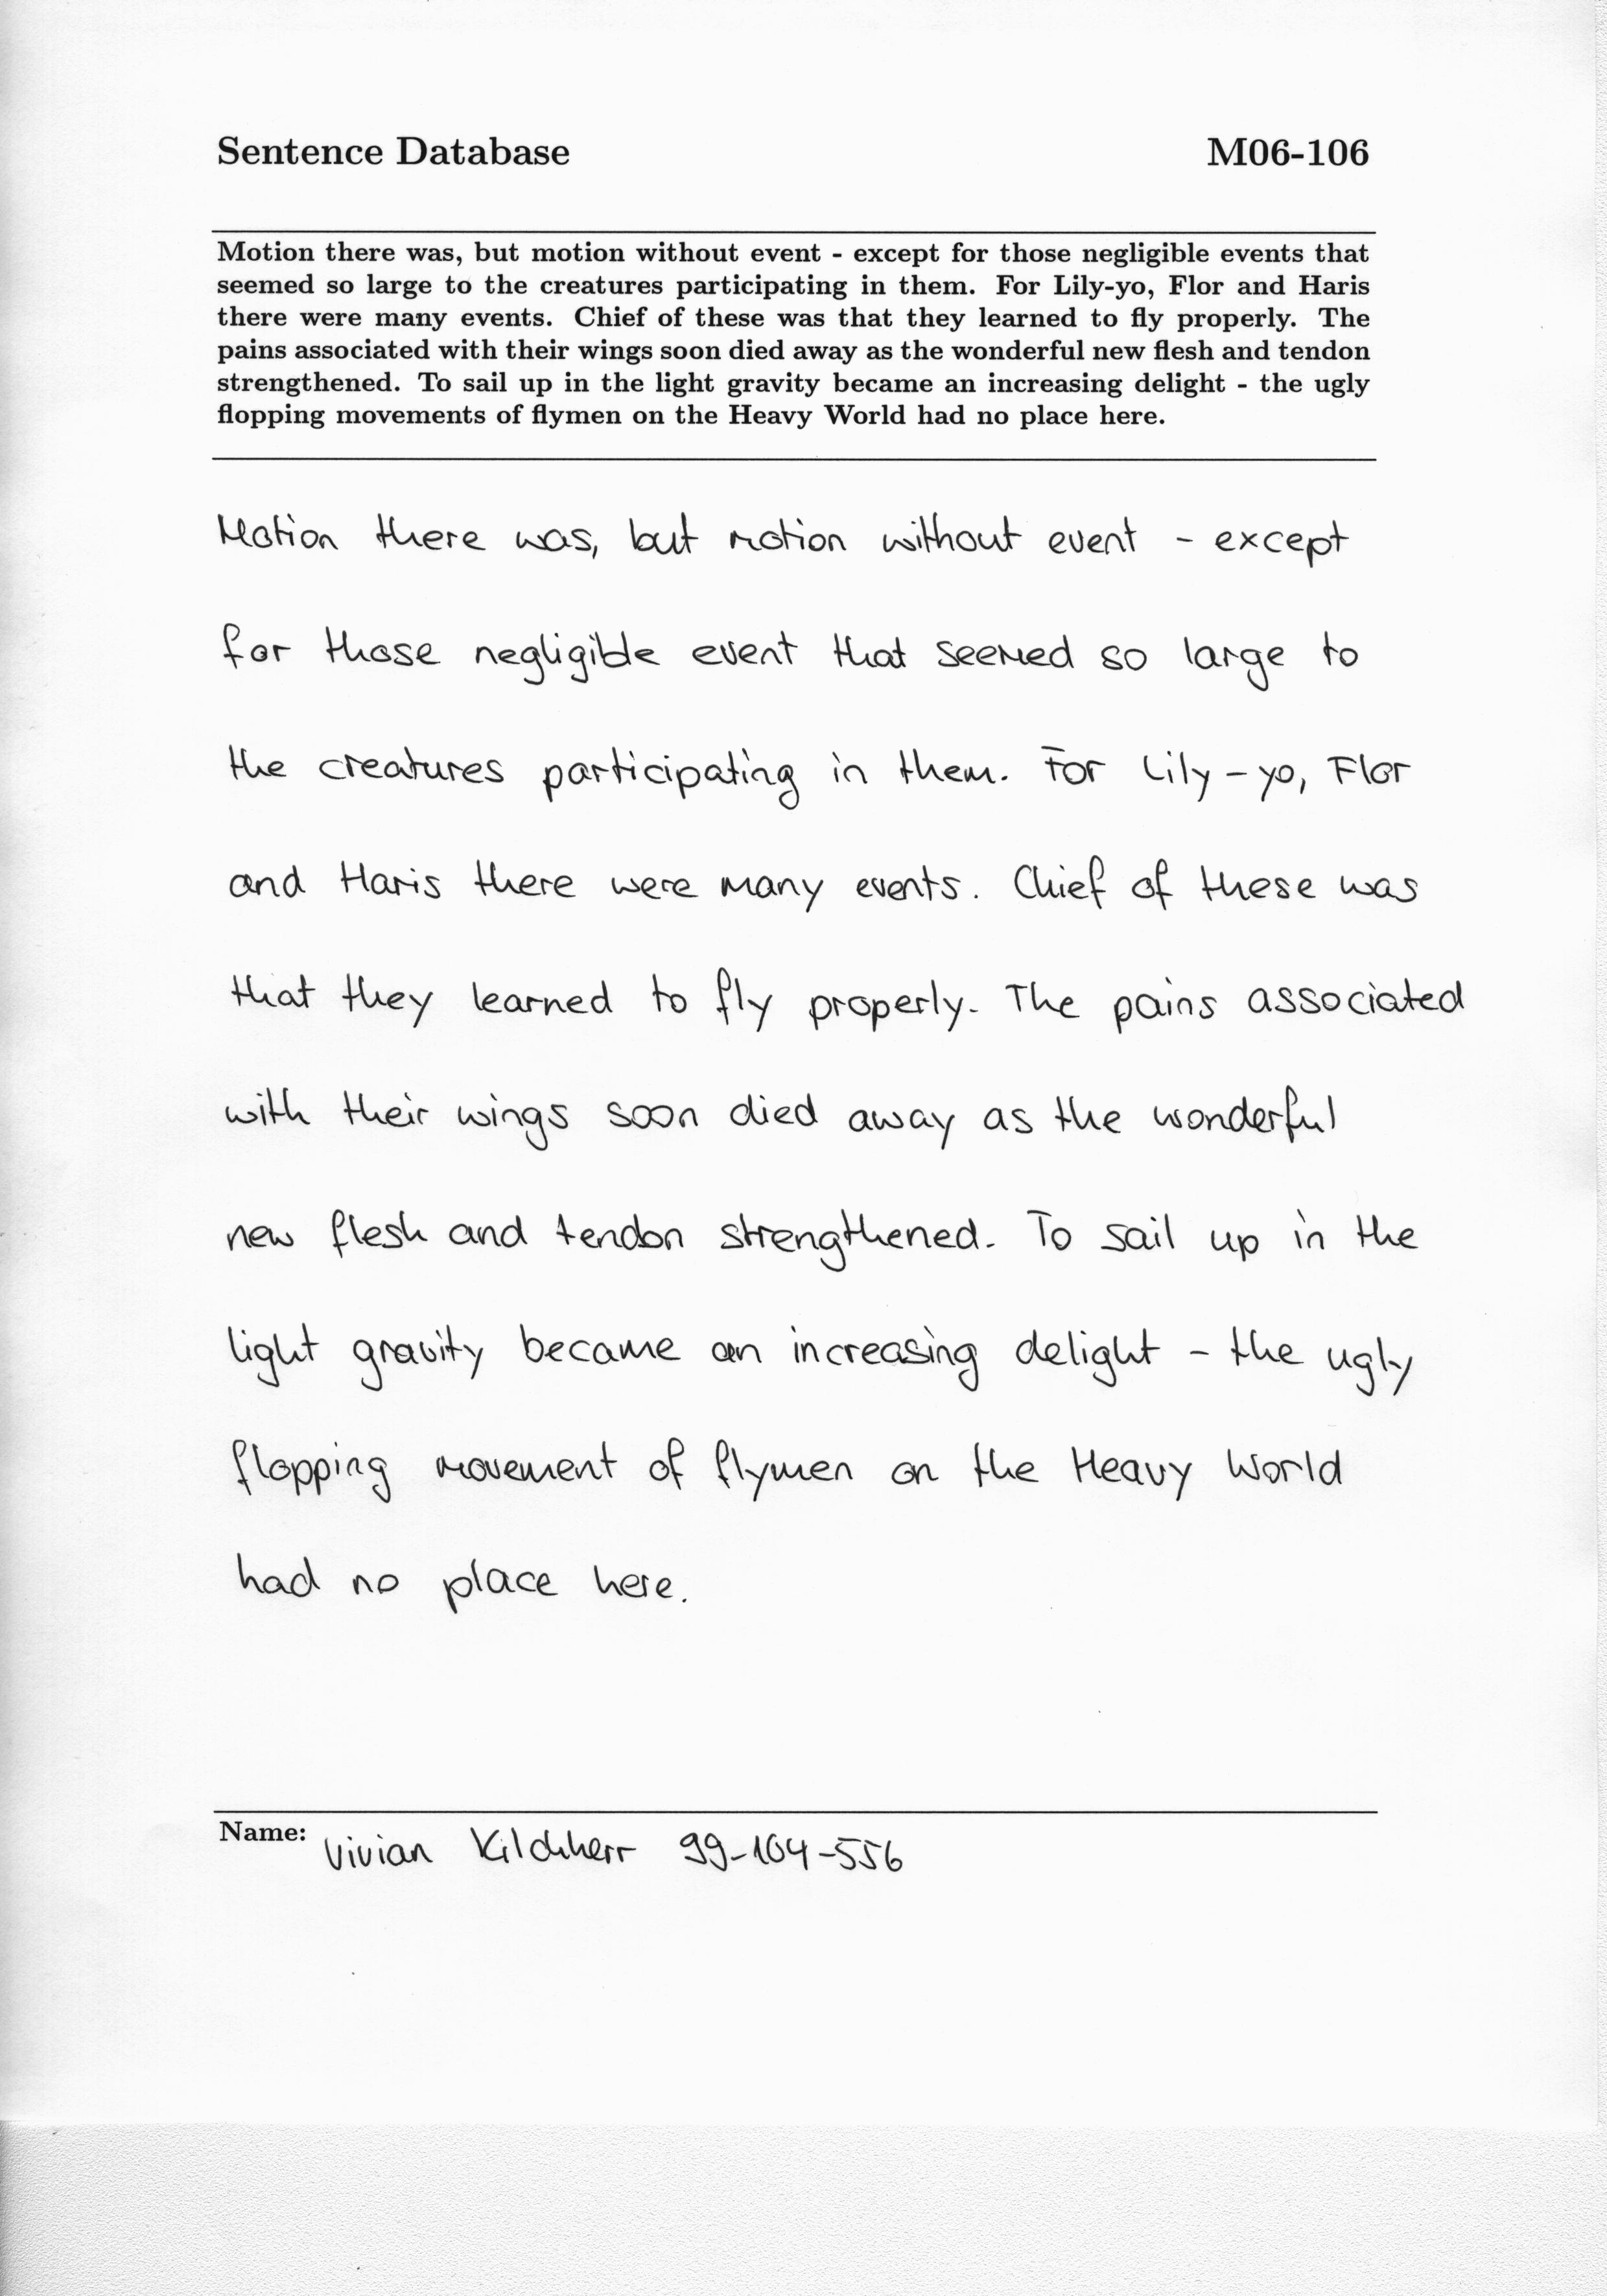 Sentence Database M06-106
Motion there was, but motion without event - except for those negligible events that
seemed so large to the creatures participating in them. For Lily-yo, Flor and Haris
there were many events. Chief of these was that they learned to fly properly. The
pains associated with their wings soon died away as the wonderful new flesh and tendon
strengthened. To sail up in the light gravity became an increasing delight - the ugly
flopping movements of flymen on the Heavy World had no place here.
Motion there was, but motion without event - except
for those negligible event that seemed so large to
the creatures participating in them. For Lily-yo, Flor
and Haris there were many events. Chief of these was
that they learned to fly properly. The pains associated
with their wings soon died away as the wonderful
new flesh and tendon strengthened. To sail up in the
light gravity became an increasing delight - the ugly
flopping movement of flymen on the Heavy World
had no place here.
Name: Vivian Kilchherr 99-104-556